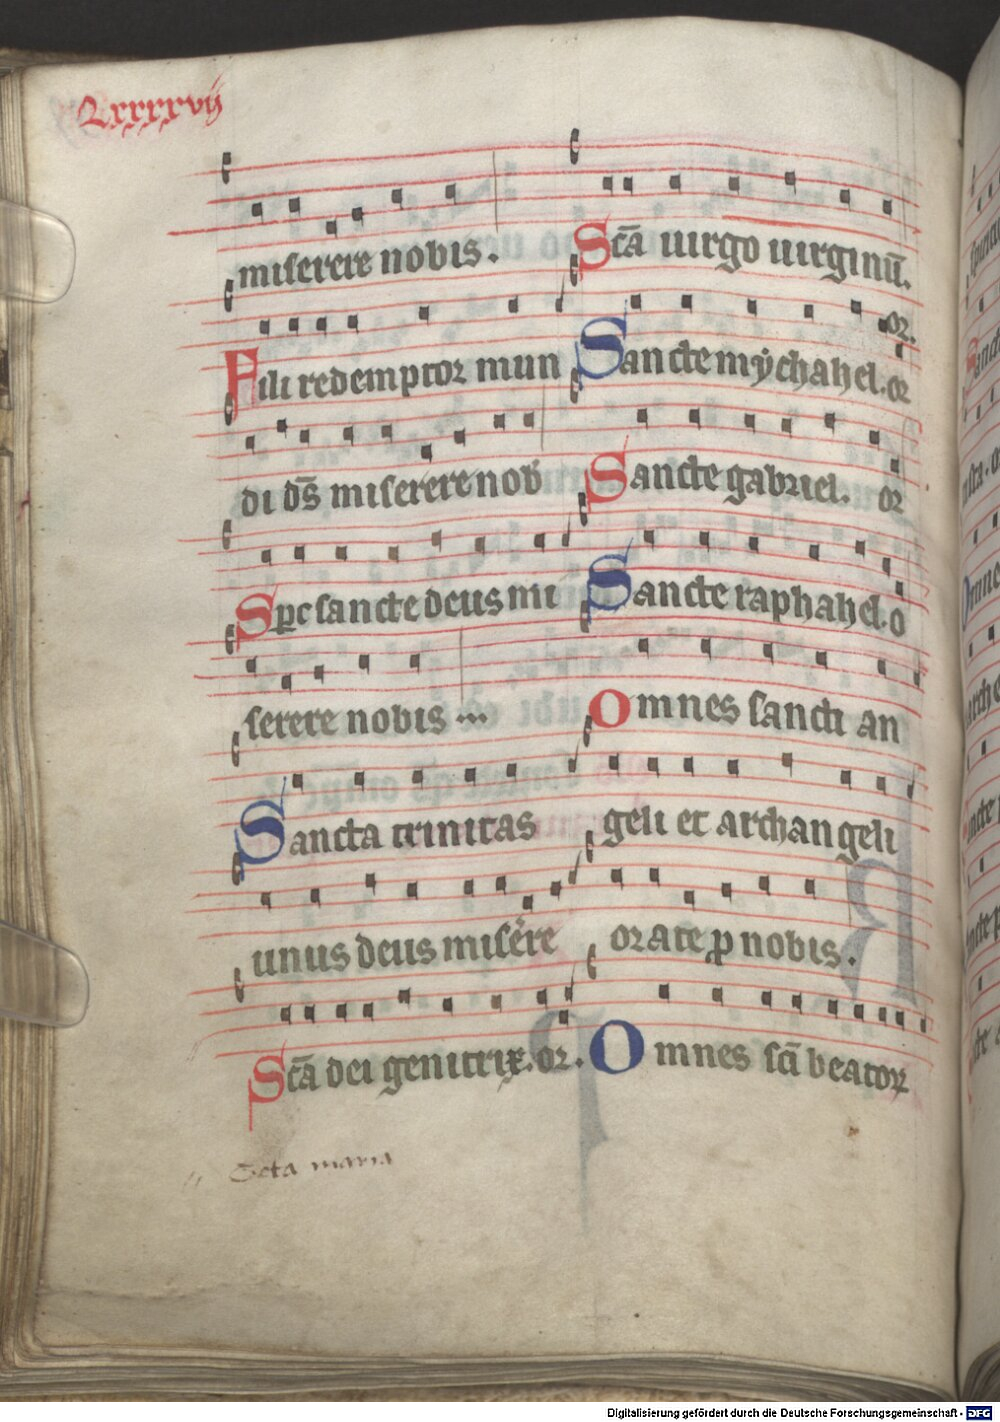 Lxxxxvij
miserere nobis.
Fili redemptor mun
di ds̄ miserere nob
Sp̄c sancte deus mi
serere nobis ...
Sancta trinitas
unus deus misere
Sc̄a dei genitrix. or.
Scta maria
Sc̄a uirgo uirginū.
or.
Sancte mychahel. or
Sancte gabriel. or
Sancte raphahel. o
Omnes sancti an
geli et archangeli
orate ꝓ nobis.
Omnes sc̄i beatoꝝ
Digitalisierung gefördert durch die Deutsche Forschungsgemeinschaft - DFG